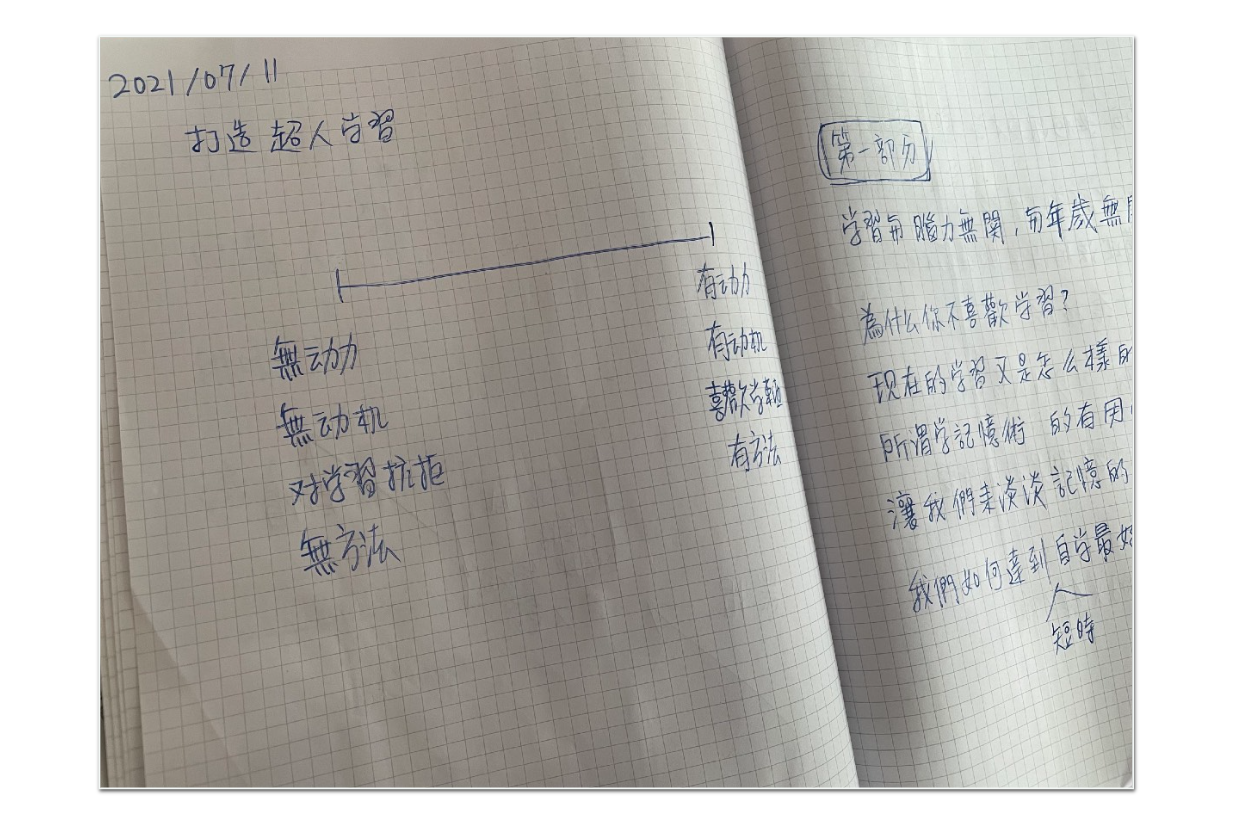 2021/07/11
打造超人学習
無动力
無动机
对学習抗拒
無方法
有动力
有动机
喜歡学
有方法
第一部分
学習与腦力無関，与年歲無
為什么你不喜歡学習？
现在的学習又是怎么樣的
所谓学記憶術 的有用
讓我們来谈谈記憶的
我們如何達到自学最好
短時